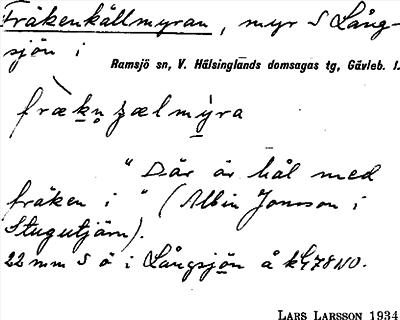 Fräkenkällmyran, myr S Lång-
sjön i
Ramsjö sn, V. Hälsinglands domsagas tg, Gävleb. l.
fræ̀kn̥ ɟælmy̆ra
"Där är hål med
fräken i" (Albin Jonsson i
Stugutjärn).
22 mm S ö i Långsjön å kG78NO.
LARS LARSSON 1934